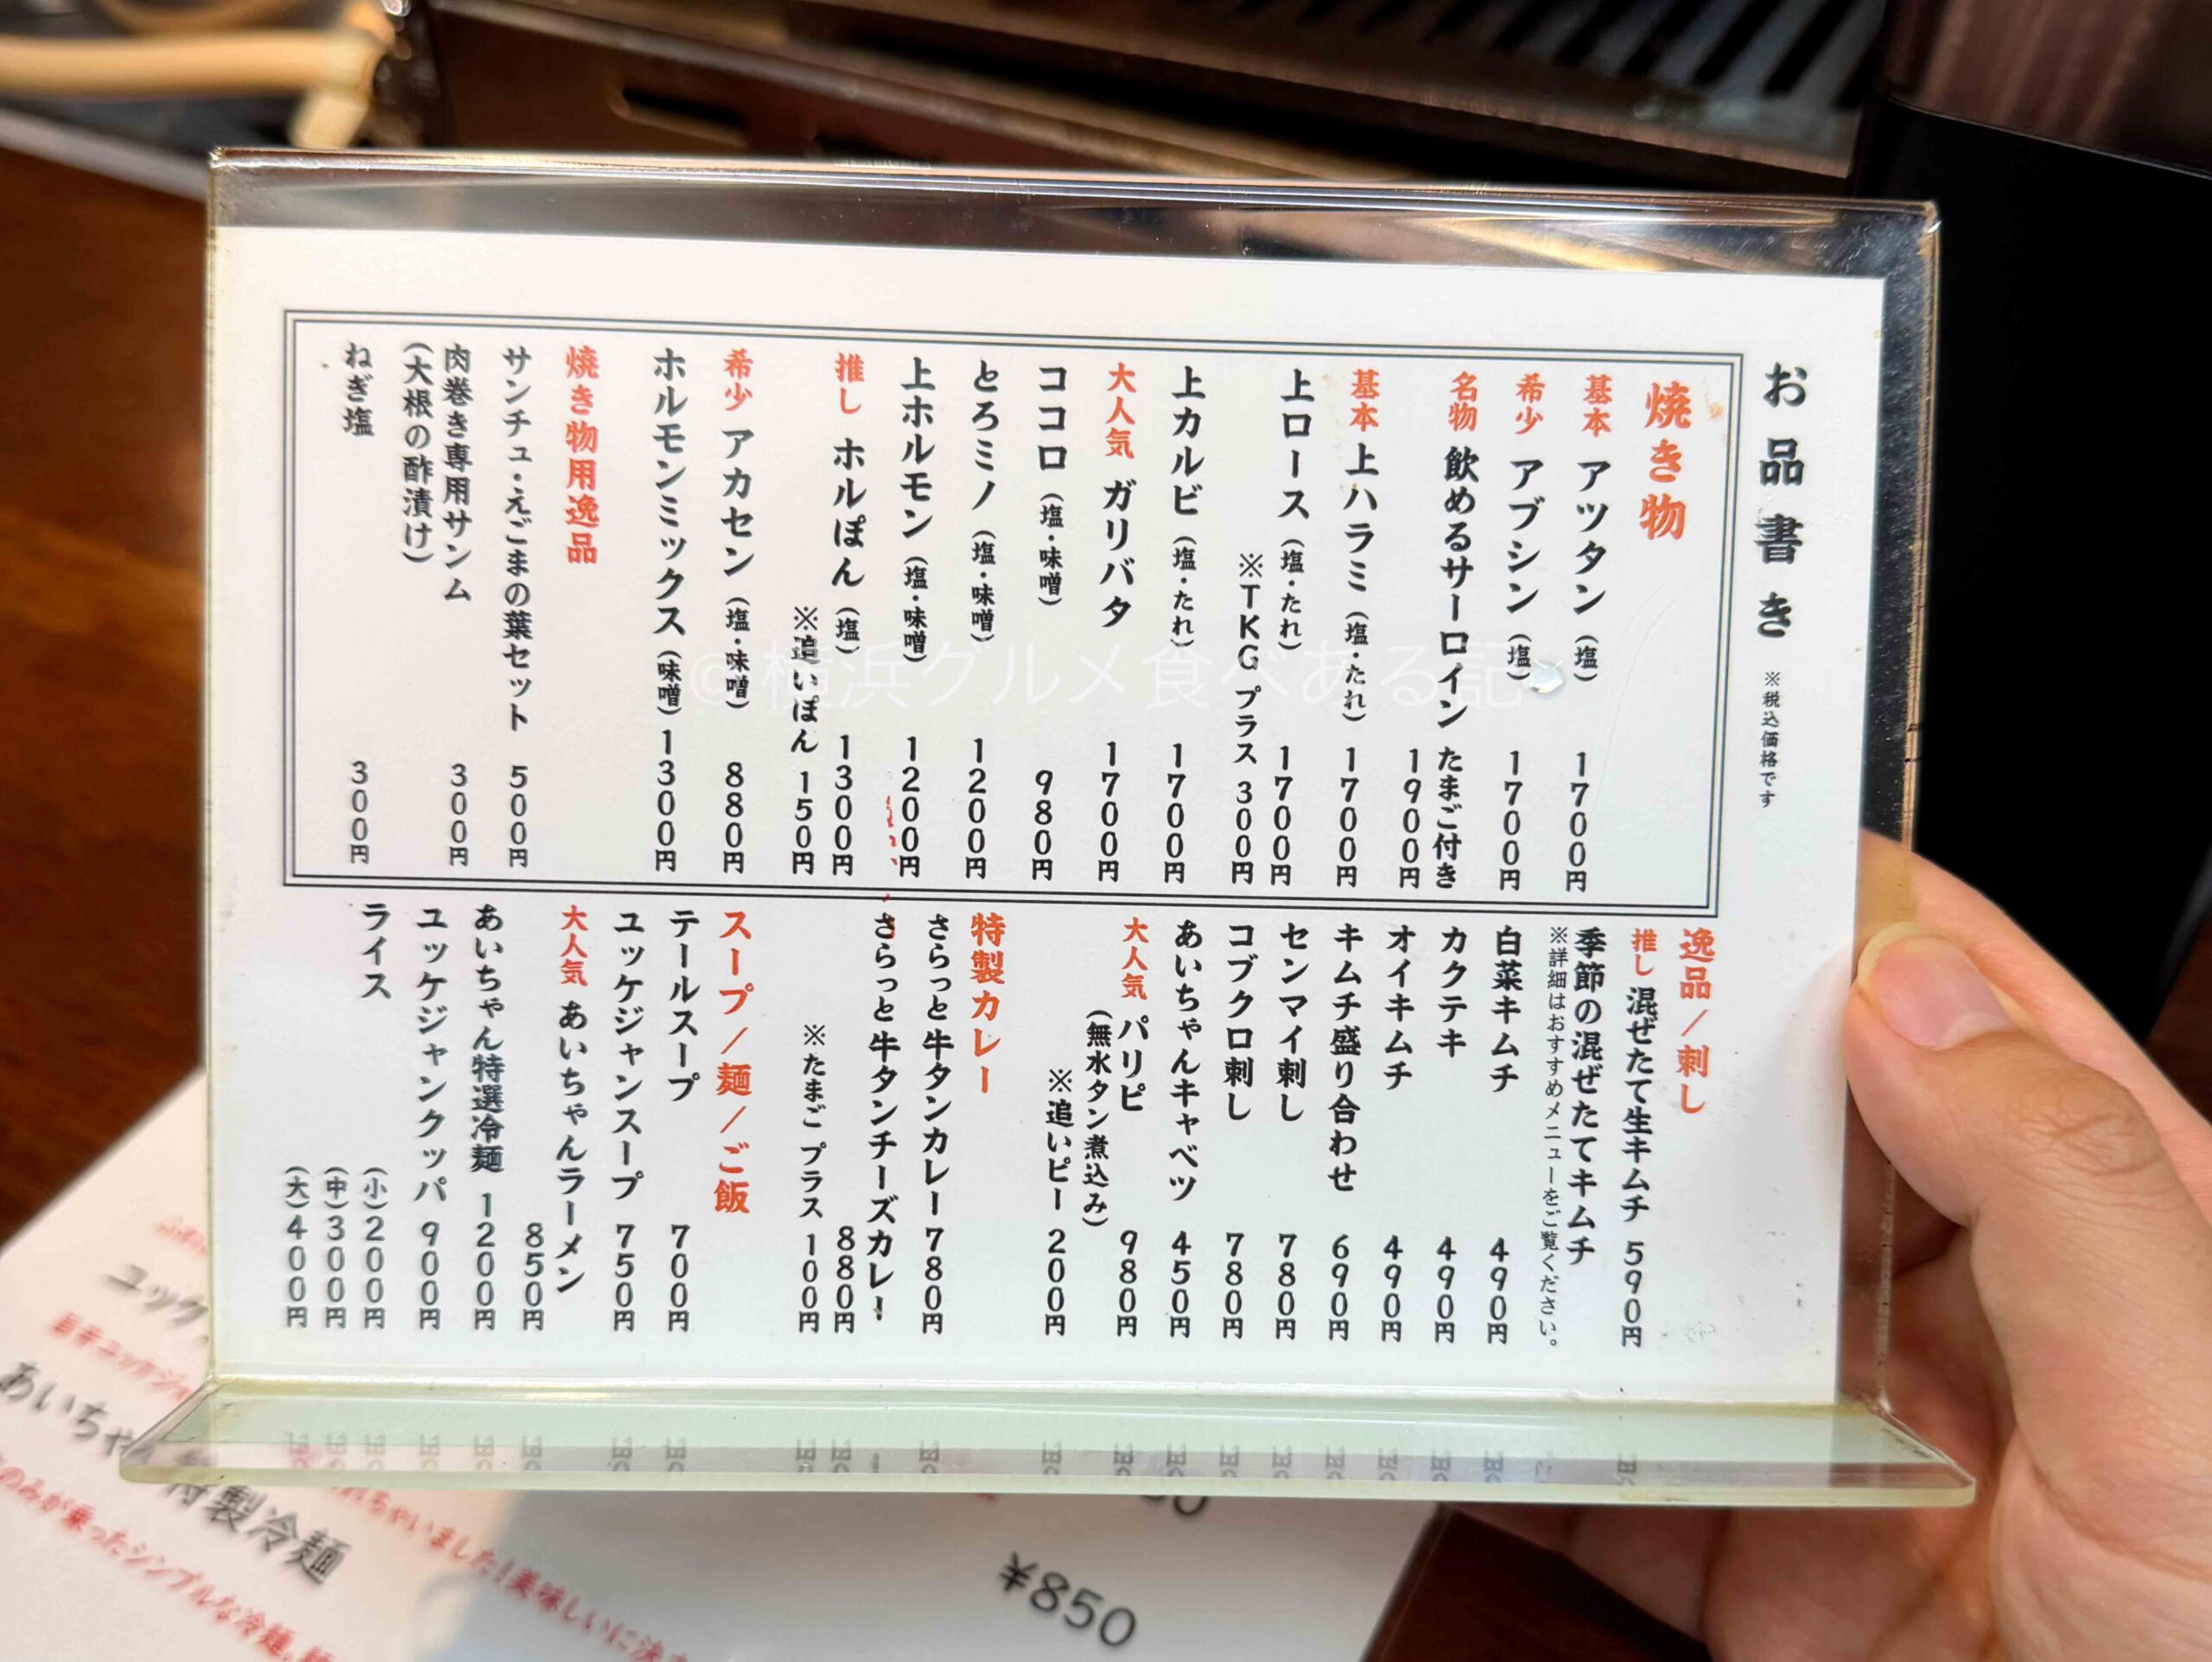 お品書き ※税込価格です
焼き物
基本 アツタン（塩） 1700円
希少 アブシン（塩） 1700円
名物 飲めるサーロイン たまご付き
1900円
基本 上ハラミ（塩・たれ） 1700円
上ロース（塩・たれ） 1700円
※TKGプラス 300円
上カルビ（塩・たれ） 1700円
大人気 ガリバタ 1700円
ココロ（塩・味噌） 980円
とろミノ（塩・味噌） 1200円
上ホルモン（塩・味噌） 1200円
推し ホルぽん（塩） 1300円
※追いぽん 150円
希少 アカセン（塩・味噌） 880円
ホルモンミックス（味噌） 1300円
焼き物用逸品
サンチュ・えごまの葉セット 500円
肉巻き専用サンム 300円
（大根の酢漬け）
ねぎ塩 300円
逸品／刺し
推し 混ぜたて生キムチ 590円
季節の混ぜたてキムチ
※詳細はおすすめメニューをご覧ください。
白菜キムチ 490円
カクテキ 490円
オイキムチ 490円
キムチ盛り合わせ 690円
センマイ刺し 780円
コブクロ刺し 780円
あいちゃんキャベツ 450円
大人気 パリピ 980円
（無水タン煮込み）
※追いピー 200円
特製カレー
さらっと牛タンカレー 780円
さらっと牛タンチーズカレー
880円
※たまごプラス 100円
スープ／麺／ご飯
テールスープ 700円
ユッケジャンスープ 750円
大人気 あいちゃんラーメン
850円
あいちゃん特選冷麺 1200円
ユッケジャンクッパ 900円
ライス （小）200円
（中）300円
（大）400円
©横浜グルメ食べある記
ユック
旨辛ユッケジ
あいちゃ 特製冷麺
のみが乗ったシンプルな冷麺、麺
れちゃいました！美味しいに決ま
¥850